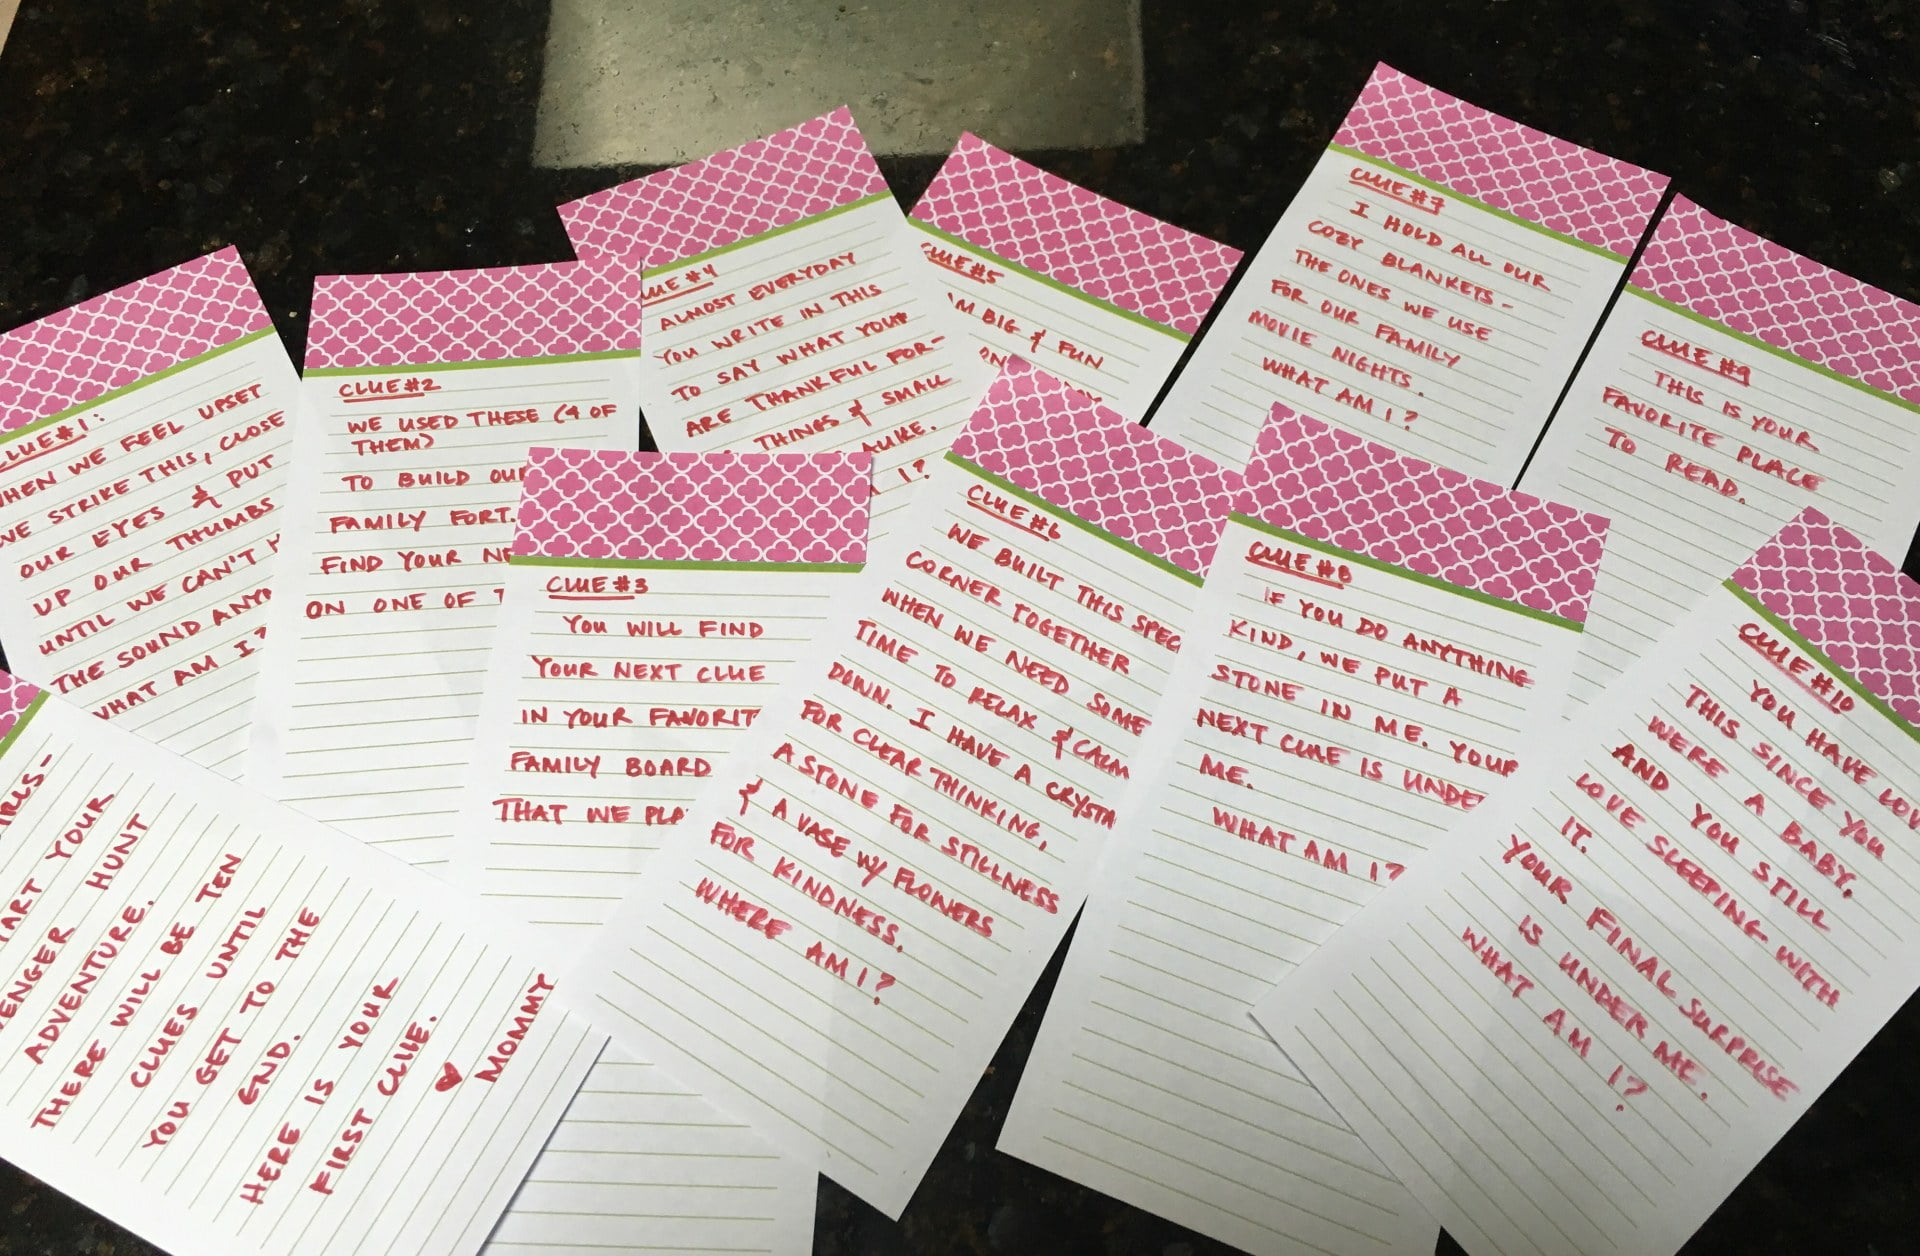 START YOUR
HUNT
ADVENTURE.
THERE WILL BE TEN
CLUES UNTIL
YOU GET TO THE
END.
HERE IS YOUR
FIRST CLUE.
♥ MOMMY
CLUE #1:
WHEN WE FEEL UPSET
WE STRIKE THIS, CLOSE
OUR EYES & PUT
UP OUR THUMBS
UNTIL WE CAN'T
THE SOUND
WHAT AM I?
CLUE #2
WE USED THESE (4 OF
THEM)
TO BUILD
FAMILY FORT.
FIND YOUR
ON ONE OF
CLUE #3
YOU WILL FIND
YOUR NEXT CLUE
IN YOUR FAVORIT
FAMILY BOARD
THAT WE
CLUE #4
ALMOST EVERYDAY
YOU WRITE IN THIS
TO SAY WHAT YOU
ARE THANKFUL FOR-
THINGS & SMALL
ALIKE.
I?
CLUE #5
BIG & FUN
CLUE #6
WE BUILT THIS SPEC
CORNER TOGETHER
WHEN WE NEED SOME
TIME TO RELAX & CALM
DOWN. I HAVE A CRYSTA
FOR CLEAR THINKING,
A STONE FOR STILLNESS
& A VASE W/ FLOWERS
FOR KINDNESS.
WHERE AM I?
CLUE #7
I HOLD ALL OUR
COZY BLANKETS-
THE ONES WE USE
FOR OUR FAMILY
MOVIE NIGHTS.
WHAT AM I?
CLUE #8
IF YOU DO ANYTHING
KIND, WE PUT A
STONE IN ME. YOUR
NEXT CLUE IS UNDE
ME.
WHAT AM I?
CLUE #9
THIS IS YOUR
FAVORITE PLACE
TO READ.
CLUE #10
YOU HAVE LOV
THIS SINCE YOU
WERE A BABY,
AND YOU STILL
LOVE SLEEPING WITH
IT.
YOUR FINAL SURPRISE
IS UNDER ME.
WHAT AM I?